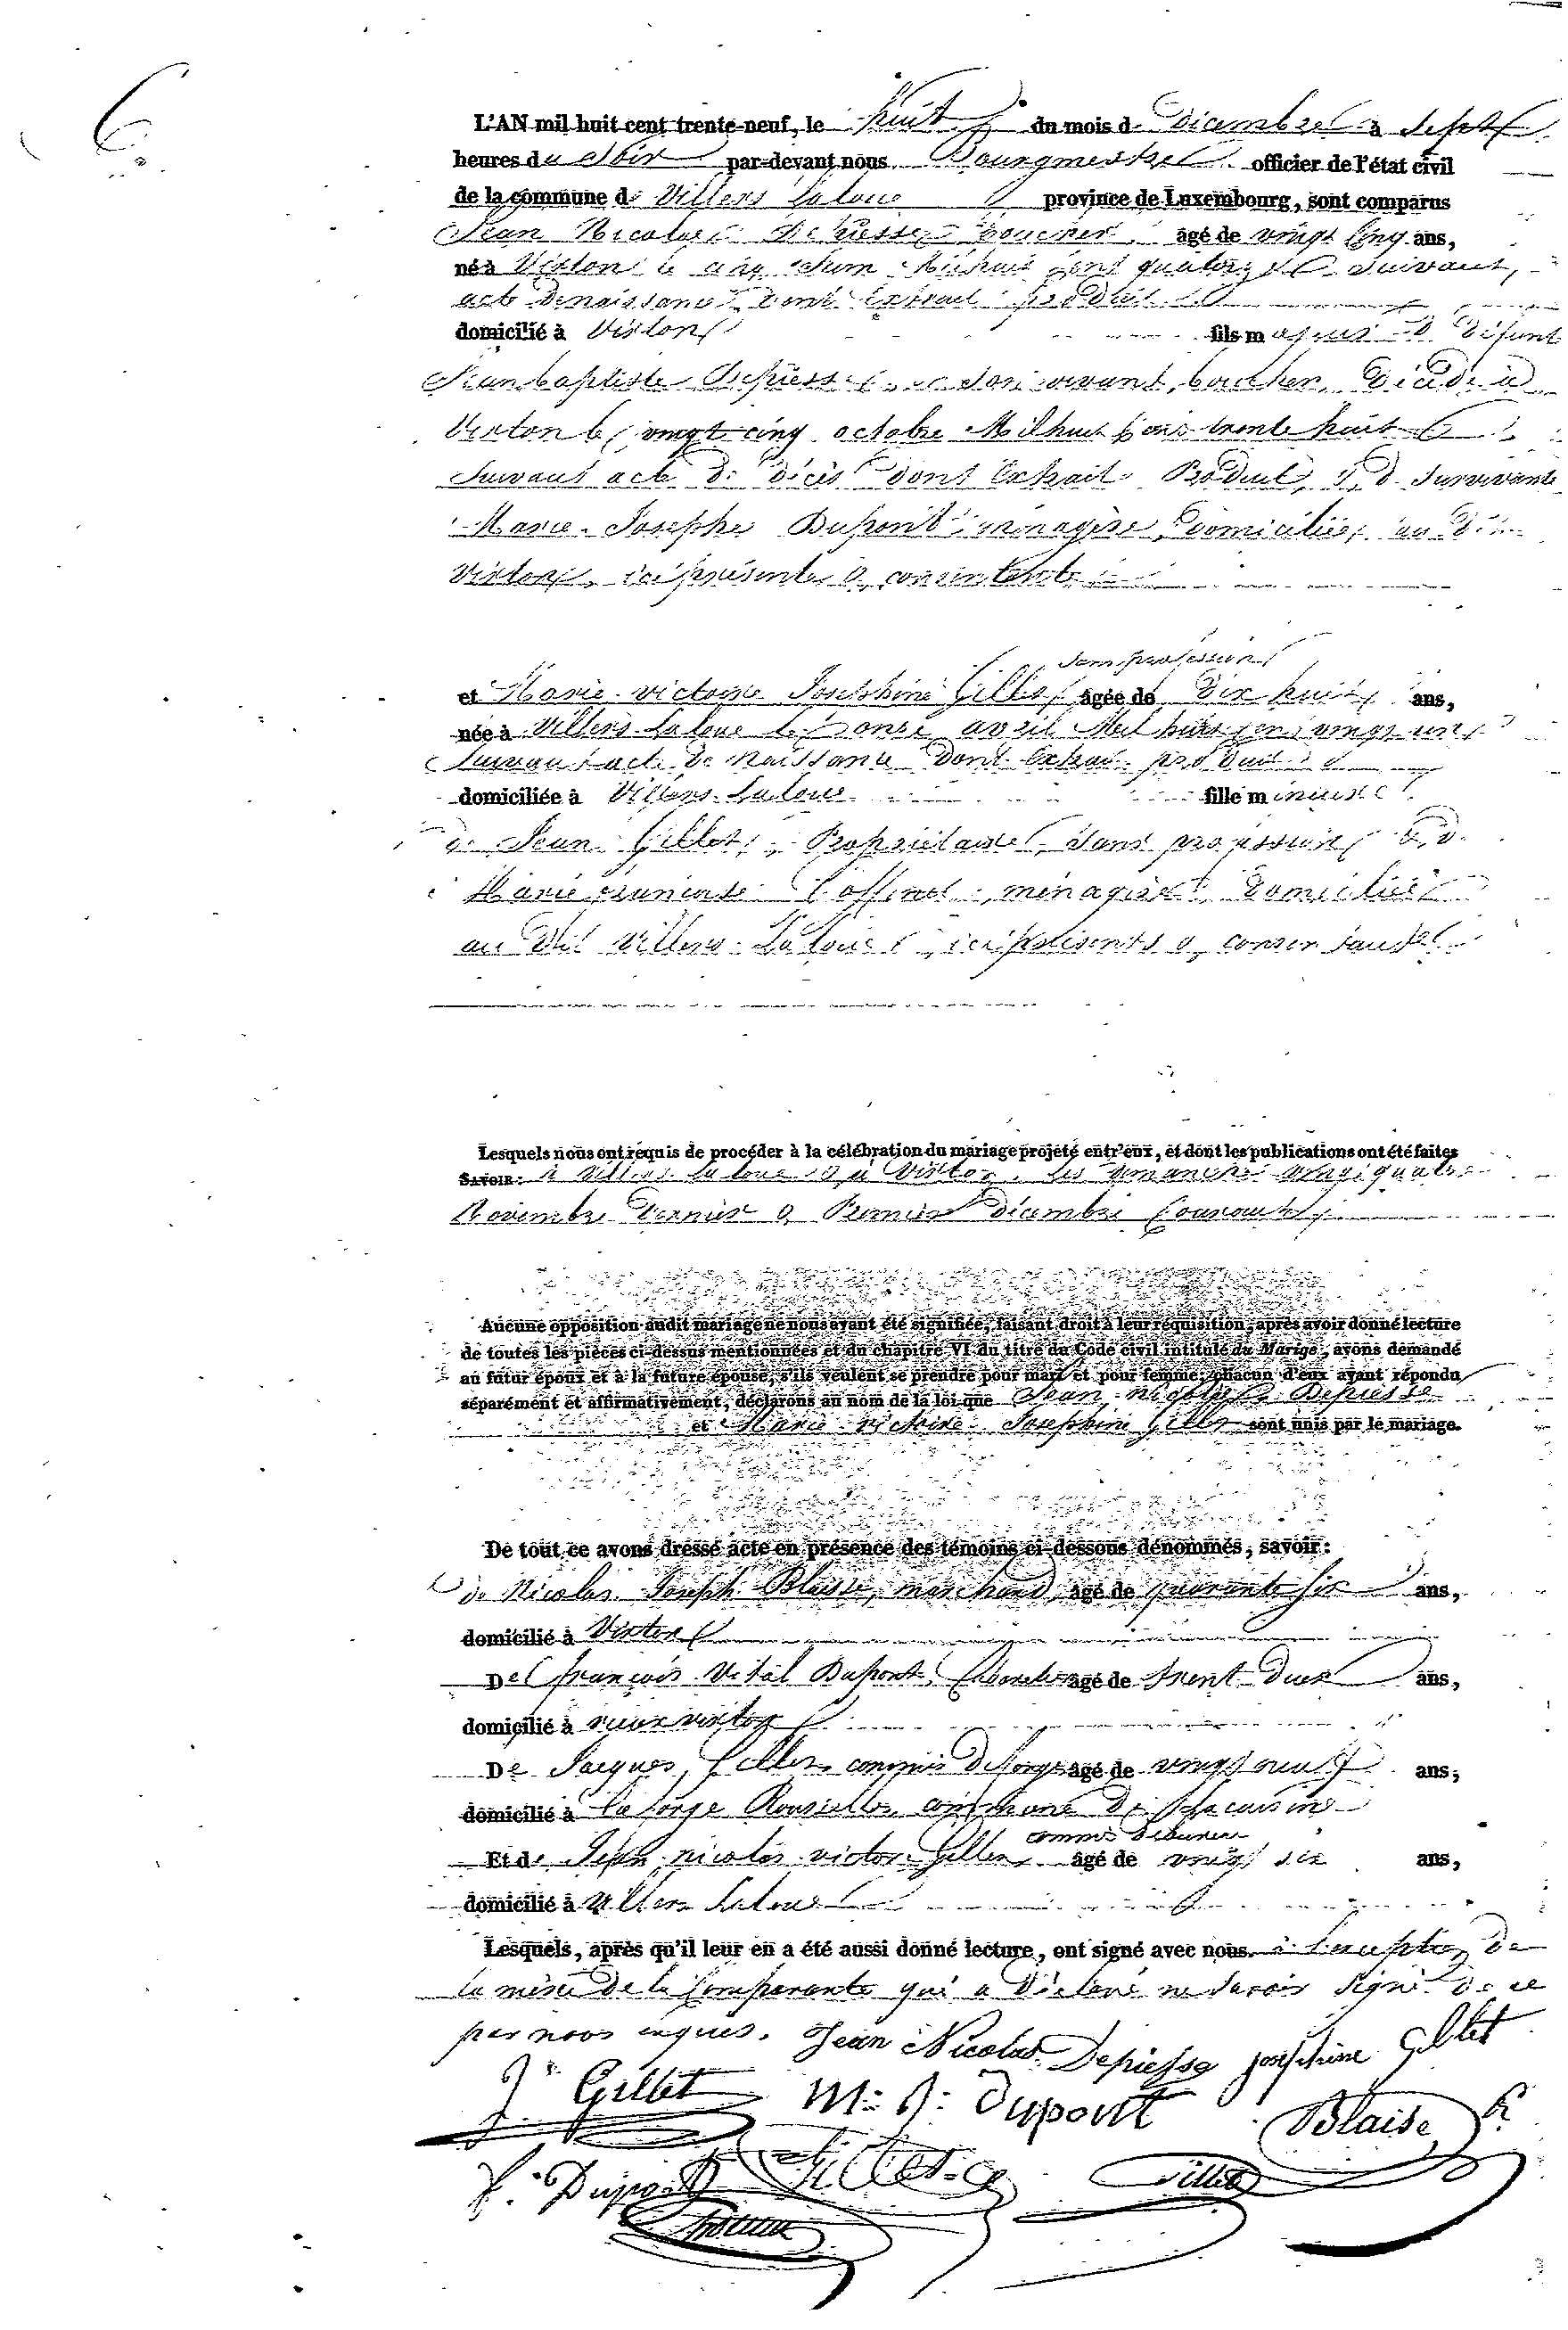 6.
L'AN mil huit cent trente-neuf, le huit du mois de Décembre à Sept
heures du Soir par-devant nous Bourgmestre officier de l'état civil
de la commune de Villers Laloue province de Luxembourg, sont comparus
Jean Nicolas Depiesse boucher, âgé de vingt Cinq ans,
né à Virton le cinq Juin Mil huit Cent quatorze Suivant,
acte de naissance dont Extrait produit
domicilié à Virton fils majeur de Défunt
Jean baptiste Depiesse en Son vivant, boucher, Décédé à
Virton le vingt cinq octobre Mil huit Cent trente huit
Suivant acte de décès dont Extrait Produit, & de Survivante
Marie Josephe Dupont ménagère, domiciliée, au dit
Virton, ici présente & consentente
Sans profession
et Marie victoire Joséphine Gillet âgée de Dix huit ans,
née à Villers Laloue le onze avril Mil huit cent vingt un
Suivant acte de Naissance dont Extrait produit
domiciliée à Villers Laloue fille mineure
de Jean Gillet, Propriétaire, Sans profession, & de
Marie ménagère Domiciliés
au dit Villers Laloue, ici présents & consentants
Lesquels nous ont requis de procéder à la célébration du mariage projeté entr'eux, et dont les publications ont été faites
SAVOIR: à Villers La loue & à Virton, les dimanche vingt quatre
Novembre Dernier & Premier décembre Courant
Aucune opposition audit mariage ne nous ayant été signifiée, faisant droit à leur réquisition, après avoir donné lecture
de toutes les pièces ci-dessus mentionnées et du chapitre VI du titre du Code civil intitulé du Mariage, avons demandé
au futur époux et à la future épouse, s'ils veulent se prendre pour mari et pour femme; chacun d'eux ayant répondu
séparément et affirmativement, déclarons au nom de la loi que Jean nicolas Depiesse
et Marie victoire Josephine Gillet sont unis par le mariage.
De tout ce avons dressé acte en présence des témoins ci-dessous dénommés, savoir:
de Nicolas Joseph Blaise, marchand, âgé de quarante Six ans,
domicilié à Virton
De françois Vital Dupont, âgé de trent Deux ans,
domicilié à vieux virton
De Jacques Gillet commis De forge âgé de vingt neuf ans,
domicilié à la forge commune de
commis De bureau
Et de Jean nicolas victor Gillet âgé de vingt six ans,
domicilié à Villers Laloue
Lesquels, après qu'il leur en a été aussi donné lecture, ont signé avec nous à l'exception de
la mère de la Comparante qui a Déclaré ne Savoir Signé de ce
par nous enquis. Jean Nicolas Depiesse Joséphine Gillet
J. Gillet M: J: Dupont Blaise
f. Dupont Gillet Gillet